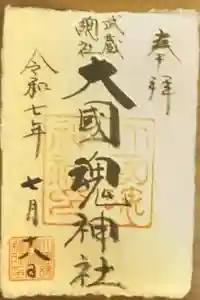 奉拝
武蔵
総社
大國魂神社
令和七年
七月十八日